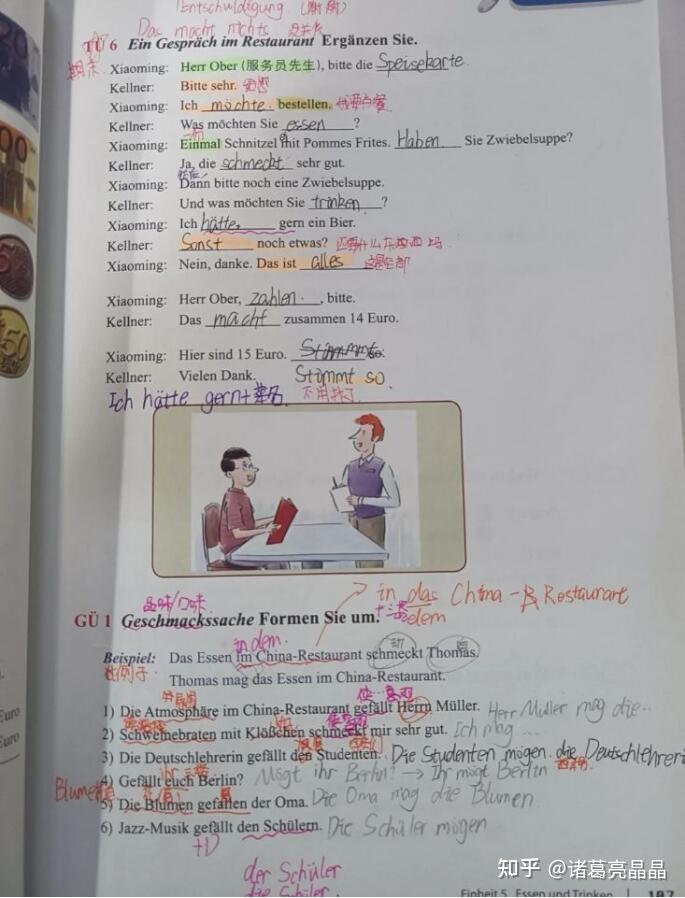 Entschuldigung
Das macht nichts 没关系
TÜ 6 Ein Gespräch im Restaurant Ergänzen Sie.
Xiaoming: Herr Ober (服务员先生), bitte die Speisekarte.
Kellner: Bitte sehr.
Xiaoming: Ich möchte bestellen. 我要点餐
Kellner: Was möchten Sie essen?
Xiaoming: Einmal Schnitzel mit Pommes Frites. Haben Sie Zwiebelsuppe?
Kellner: Ja, die schmeckt sehr gut.
Xiaoming: Dann bitte noch eine Zwiebelsuppe.
Kellner: Und was möchten Sie trinken?
Xiaoming: Ich hätte gern ein Bier.
Kellner: Sonst noch etwas? 还要什么东西吗
Xiaoming: Nein, danke. Das ist alles 这是全部
Xiaoming: Herr Ober, zahlen, bitte.
Kellner: Das macht zusammen 14 Euro.
Xiaoming: Hier sind 15 Euro. Stimmmt so.
Kellner: Vielen Dank. Stimmt so.
Ich hätte gern+ 不用找了
品味/口味
in das China-Restaurant
dem
GÜ 1 Geschmackssache Formen Sie um.
in dem
Beispiel: Das Essen im China-Restaurant schmeckt Thomas.
例子 Thomas mag das Essen im China-Restaurant.
1) Die Atmosphäre im China-Restaurant gefällt Herrn Müller. Herr Müller mag die..
2) Schweinebraten mit Klößchen schmeckt mir sehr gut. Ich mag ...
3) Die Deutschlehrerin gefällt den Studenten. Die Studenten mögen die Deutschlehreri
4) Gefällt euch Berlin? Mögt ihr Berlin? → Ihr mögt Berlin
Blume
5) Die Blumen gefallen der Oma. Die Oma mag die Blumen
6) Jazz-Musik gefällt den Schülern. Die Schüler mögen
+D
der Schüler
die Schüler
知乎 @诸葛亮晶晶
Einheit 5 Essen und Trinken | 107
Euro
Euro